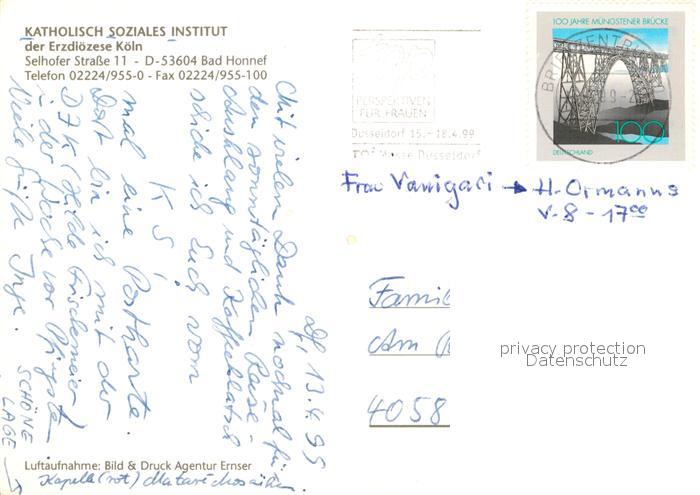 KATHOLISCH SOZIALES INSTITUT
der Erzdiözese Köln
Selhofer Straße 11 - D-53604 Bad Honnef
Telefon 02224/955-0 - Fax 02224/955-100
13.4.99
Mit vielem Dank nochmal für
den sonntäglichen Reise-
Ausklang und Kaffeeklatsch
schicke ich Euch vom
K S I
mal eine Postkarte.
Dort bin ich mit der
in der Woche vor Pfingsten
Viele Grüße Inge.
SCHÖNE
LAGE
Luftaufnahme: Bild & Druck Agentur Ernser
Kapelle (rot)
PERSPEKTIVEN
FÜR FRAUEN
Düsseldorf 15.-18.4.99
Messe Düsseldorf
100 JAHRE MÜNGSTENER BRÜCKE
BRIEFZENTRUM
100
DEUTSCHLAND
Frau Vanigari → H. Ormanns
V. 8 - 17°°
Famil
Am
4058
privacy protection
Datenschutz